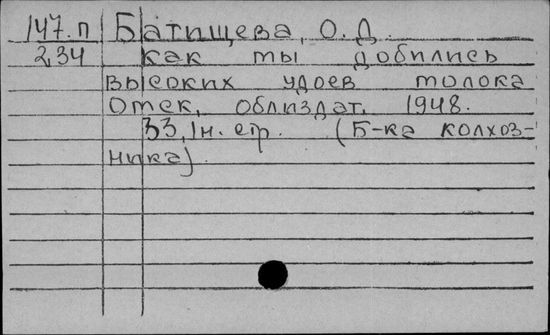 147.п Батищева, О.Д.
2,34 как ты добились
высоких удоев молока
Омск, облиздат. 1948.
33, 1н. стр. (Б-ка колхоз-
ника).